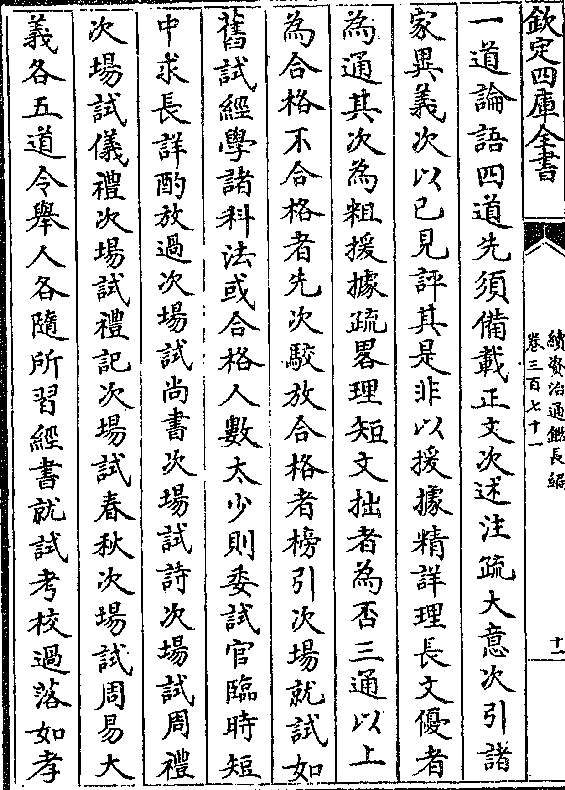 欽定四庫全書
續資治通鑑長編
卷三百七十一
十一
一道論語四道先須備載正文次述注疏大意次引諸
家異義次以已見評其是非以援據精詳理長文優者
為通其次為粗援據疏畧理短文拙者為否三通以上
為合格不合格者先次駮放合格者榜引次場就試如
舊試經學諸科法或合格人數太少則委試官臨時短
中求長詳酌放過次場試尚書次場試詩次場試周禮
次場試儀禮次場試禮記次場試春秋次場試周易大
義各五道令舉人各隨所習經書就試考校過落如孝